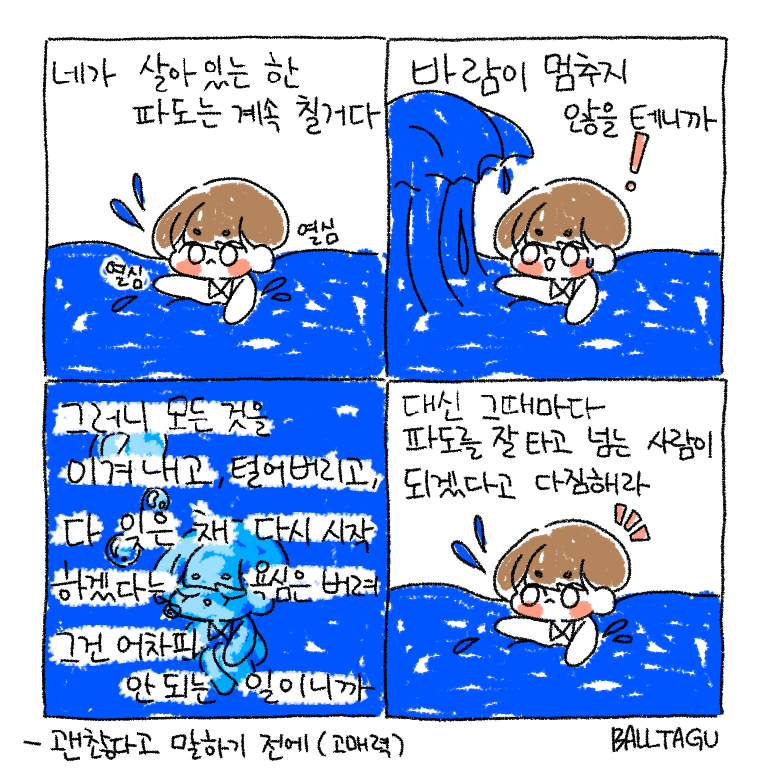 네가 살아 있는 한
파도는 계속 칠거다
열심
열심
바람이 멈추지
않을 테니까
!
그러니 모든 것을
이겨 내고, 털어버리고,
다 잊은 채 다시 시작
하겠다는 욕심은 버려
그건 어차피
안 되는 일이니까
대신 그때마다
파도를 잘 타고 넘는 사람이
되겠다고 다짐해라
- 괜찮다고 말하기 전에 (고매력)
BALLTAGU